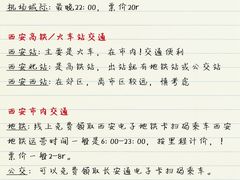 机场城际: 最晚22:00, 票价20r
西安高铁/火车站交通
西安站: 主要是火车, 在市内! 交通便利
西安北站: 是高铁站, 出站就有地铁站或公交站
西安西站: 在郊区, 离市区较远, 慎考虑
西安市内交通
地铁: 线上免费领取西安电子地铁卡扫码乘车西安
地铁运营时间一般是6:00-23:00, 按里程计价, !
票价一般2-8r。
公交: 可以免费领取长安通电子卡扫码乘车。